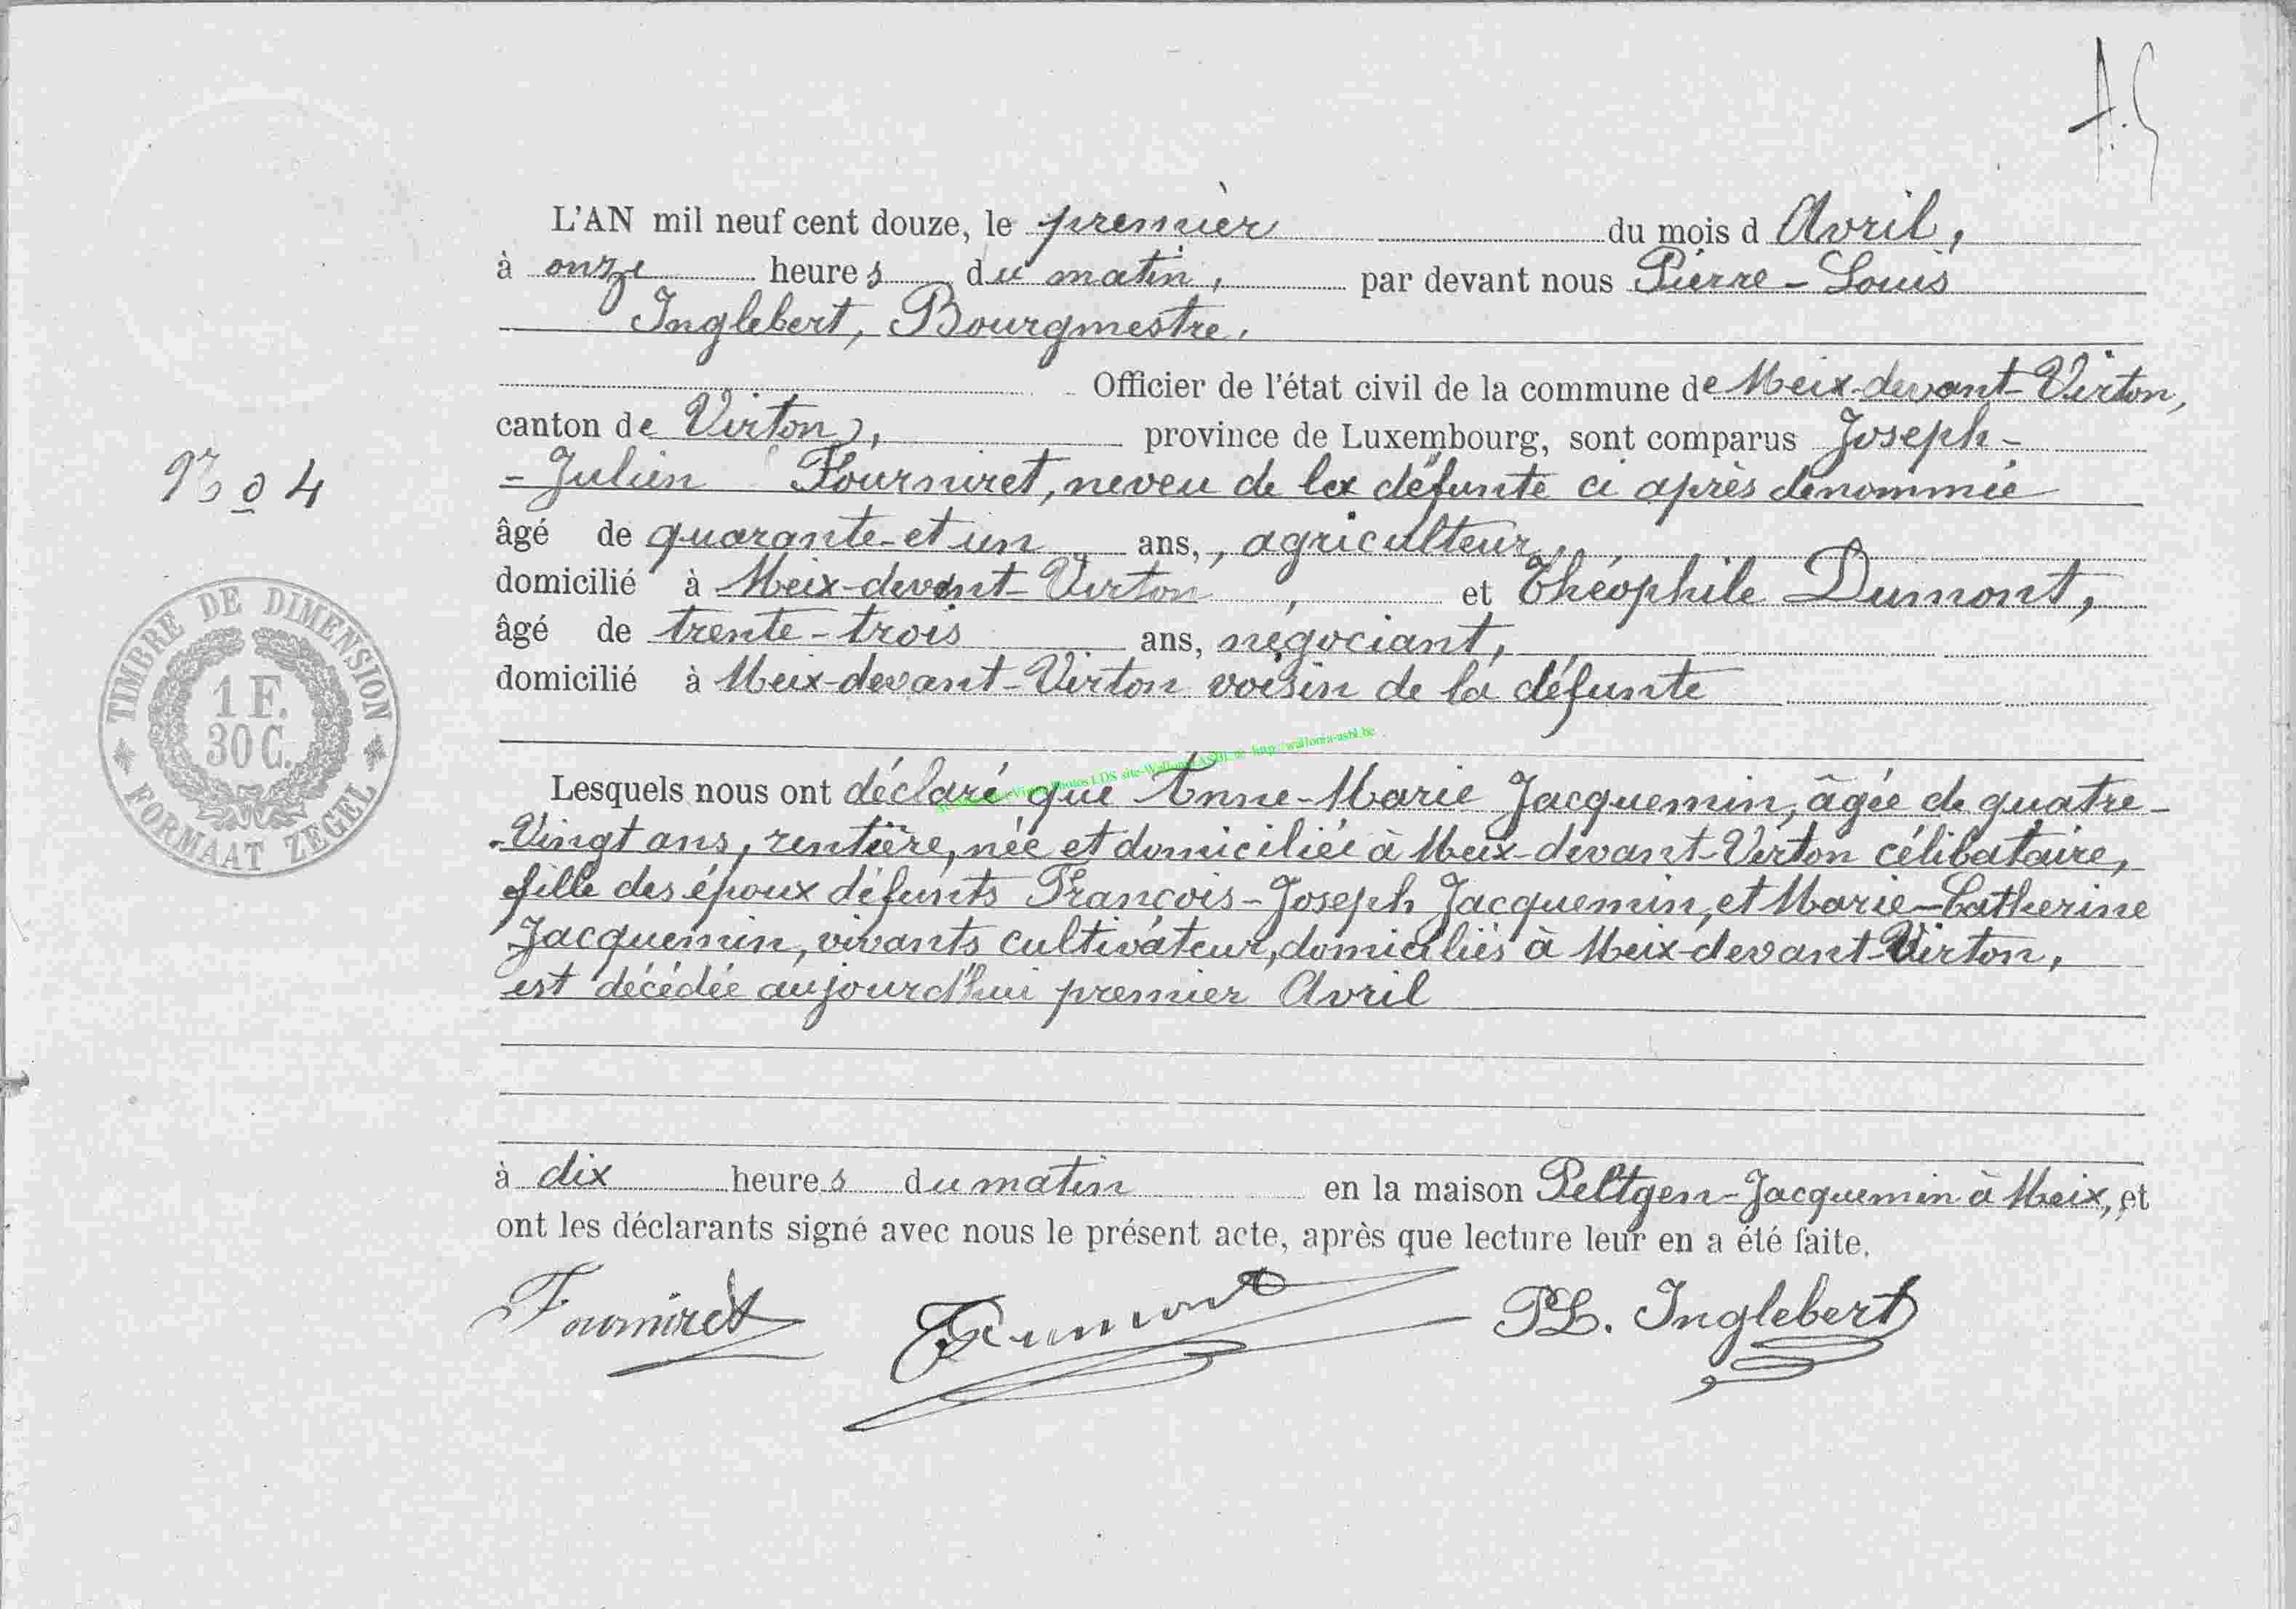 A.S
L'AN mil neuf cent douze, le premier du mois d Avril,
à onze heures du matin, par devant nous Pierre-Louis
Inglebert, Bourgmestre,
Officier de l'état civil de la commune de Meix-devant-Virton,
canton de Virton, province de Luxembourg, sont comparus Joseph-
-Julien Fourniret, neveu de la défunte ci après dénommée
âgé de quarante-et un ans, , agriculteur,
domicilié à Meix-devant-Virton , et Théophile Dumont,
âgé de trente-trois ans, négociant,
domicilié à Meix-devant-Virton voisin de la défunte
No 4
TIMBRE DE DIMENSION
1 F.
30 C.
FORMAAT ZEGEL
Photos LDS site-Wallonia-ASBL http://wallonia-asbl.be
Lesquels nous ont déclaré que Anne-Marie Jacquemin, âgée de quatre-
-Vingt ans, rentière, née et domiciliée à Meix-devant-Virton célibataire,
fille des époux défunts François-Joseph Jacquemin, et Marie-Catherine
Jacquemin, vivants cultivateur, domiciliés à Meix-devant-Virton,
est décédée aujourd'hui premier Avril
à dix heures du matin en la maison Peltgen-Jacquemin à Meix, et
ont les déclarants signé avec nous le présent acte, après que lecture leur en a été faite.
Fourniret Dumont PL. Inglebert